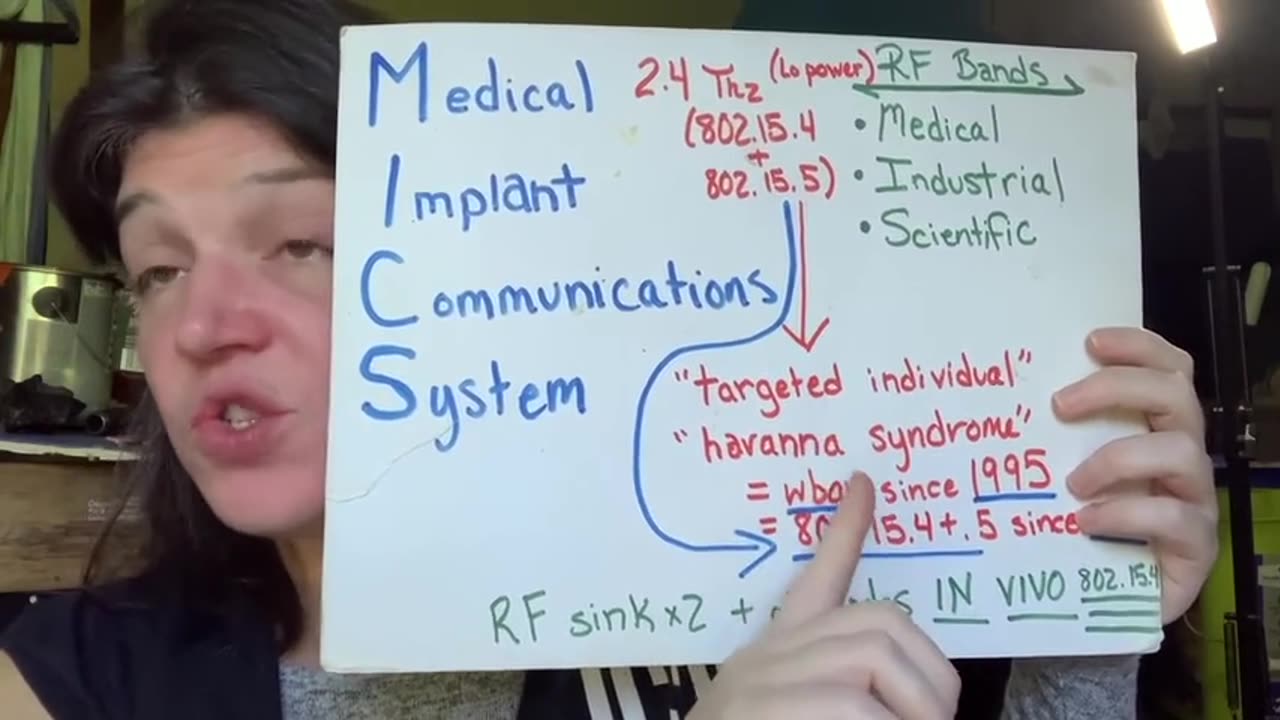 Medical
Implant
Communications
System
2.4 Thz (Lo power)
(802.15.4
+
802.15.5)
RF Bands
• Medical
• Industrial
• Scientific
"targeted individual"
"havanna syndrome"
= since 1995
= 15.4+.5 since
RF sink x2 + IN VIVO 802.15.4